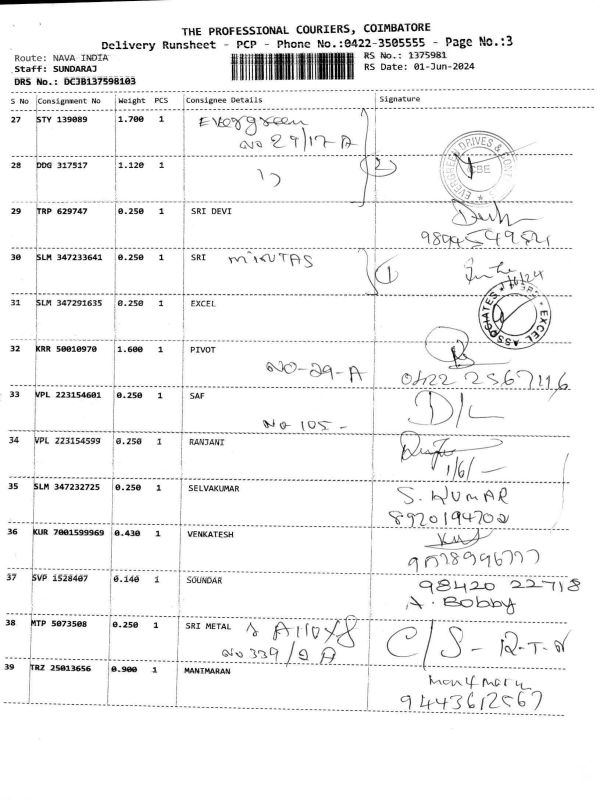 THE PROFESSIONAL COURIERS, COIMBATORE
Delivery Runsheet - PCP - Phone No.:0422-3505555 - Page No.:3
Route: NAVA INDIA
RS No.: 1375981
Staff: SUNDARAJ
RS Date: 01-Jun-2024
DRS No.: DCJB137598103
S No Consignment No Weight PCS Consignee Details Signature
27 STY 139089 1.700 1 Evergreen
No 29/17-A
EVERGREEN DRIVES & CONT
CBE
28 DDG 317517 1.120 1 2
29 TRP 629747 0.250 1 SRI DEVI
30 SLM 347233641 0.250 1 SRI 1
31 SLM 347291635 0.250 1 EXCEL
EXCEL ASSOCIATES
32 KRR 50010970 1.600 1 PIVOT
NO-29-A 0422 2567116
33 VPL 223154601 0.250 1 SAF D/L
No 105-
34 VPL 223154599 0.250 1 RANJANI
1/6/-
35 SLM 347232725 0.250 1 SELVAKUMAR S. KUMAR
36 KUR 7001599969 0.430 1 VENKATESH
37 SVP 1528407 0.140 1 SOUNDAR 98420 22718
A. Bobby
38 MTP 5073508 0.250 1 SRI METAL & Alloys C/S - R-T-N
No 339/2 A
39 TRZ 25013656 0.900 1 MANIMARAN
9443612567